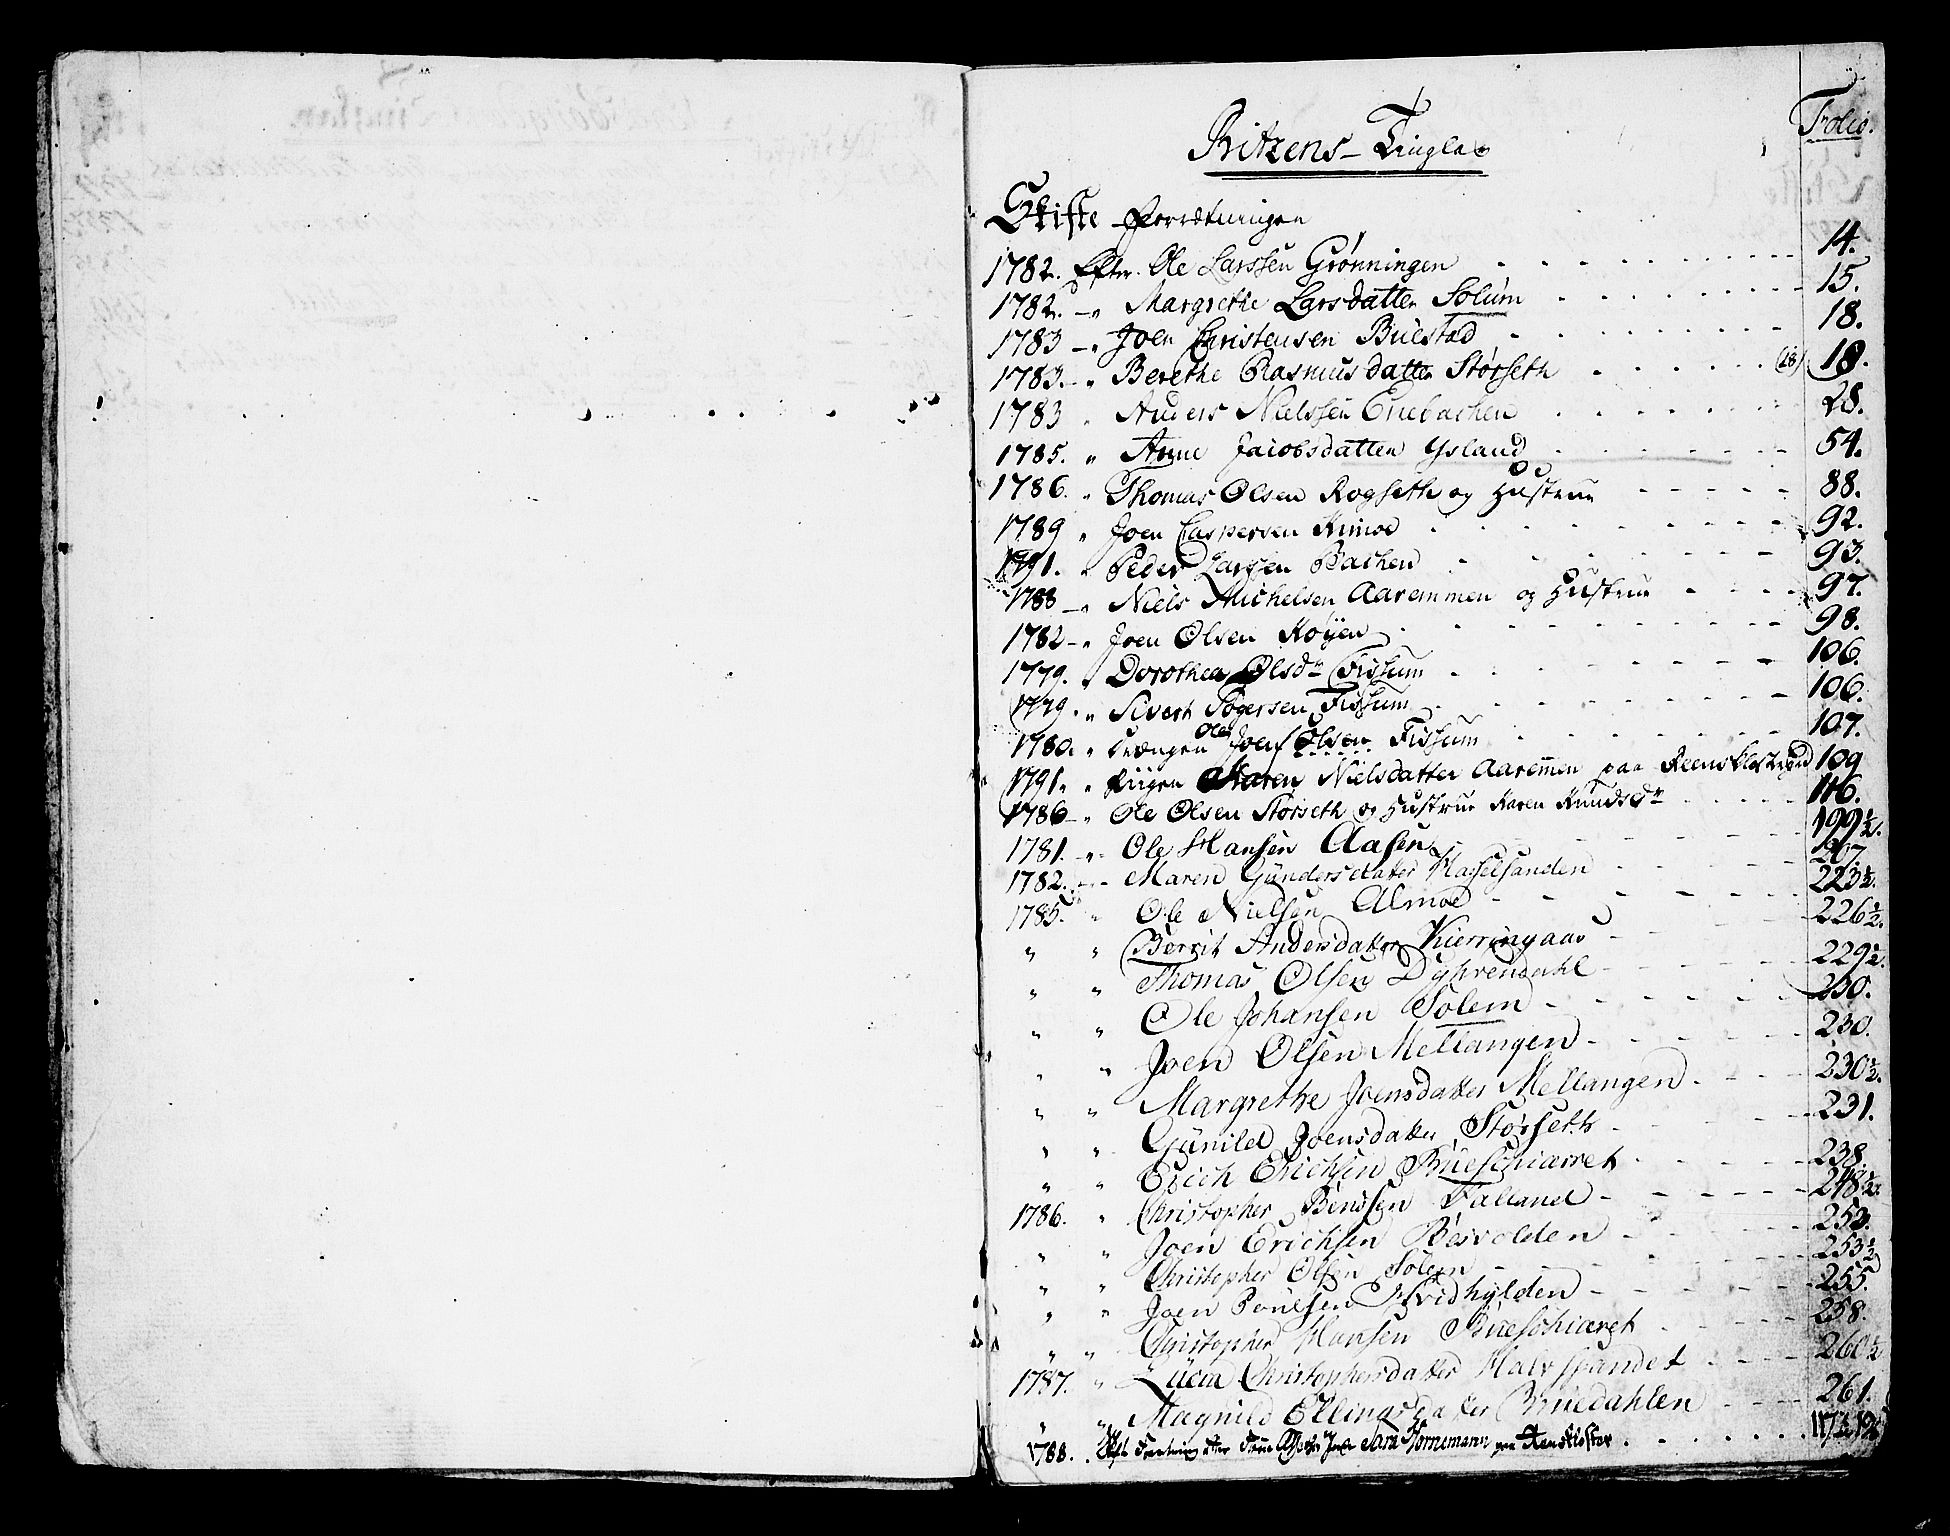 Folio.
Ritzens - Tinglav
Skifte Forretningen
1782. Efter. Ole Larssen Grønningen 14.
1782. " Margrethe Larsdatter Solum 15.
1783 " Joen Christensen Buestad 18.
1783. " Berethe Rasmusdatter Størseth (28) 18.
1783 " Anders Nielssen Enebachen 28.
1785. " Anne Jacobsdatter Ysland 54.
1786. " Thomas Olsen Rogseth og Hustrue 88.
1789 " Joen Caspersen Kimoe 92.
1791. " Peder Larssen Bachen 93.
1788 " Niels Michelsen Aaremmen og Hustrue 97.
1782 " Joen Olsen Køyen 98.
1779. " Dorothea Olsdr Fissum 106.
1779. " Sivert Togersen Fissum 106.
1780. " Drængen Ole Joen Olsen Fissum 107.
1791. " Piigen Karen Nielsdatter Aaremmen paa Reensklostergrd 109
1786 " Ole Olsen Størseth og Hustrue Karen Knudsdr 116.
1781. " Ole Hansen Aasen 199½.
1782. " Maren Gundersdatter Hasselsanden 207.
1785. " Ole Nielsen Almoe 223½.
" " Berrit Andersdatter Kierringaas 226½.
" " Thomas Olsen Dyhrendahl 229½.
" " Ole Johansen Solem 230.
" " Joen Olsen Mellangen 230.
" " Margrethe Joensdatter Mellangen 230½.
" " Gunild Joensdatter Størseth 231.
" " Erich Erichsen Brueschiærret 238.
1786. " Christopher Bendsen Falland 248½.
" " Joen Erichsen Resvolden 253.
" " Christopher Olsen Solem 253½
" " Joen Poulsen Hvidhylden 255.
" " Christopher Hansen Brueschiæret 258.
1787. " Lucia Christophersdatter Halvspandet 260½
" " Magnild Ellingsdatter Bruedahlen 261.
1788. Sara Hornemann paa Renskloster